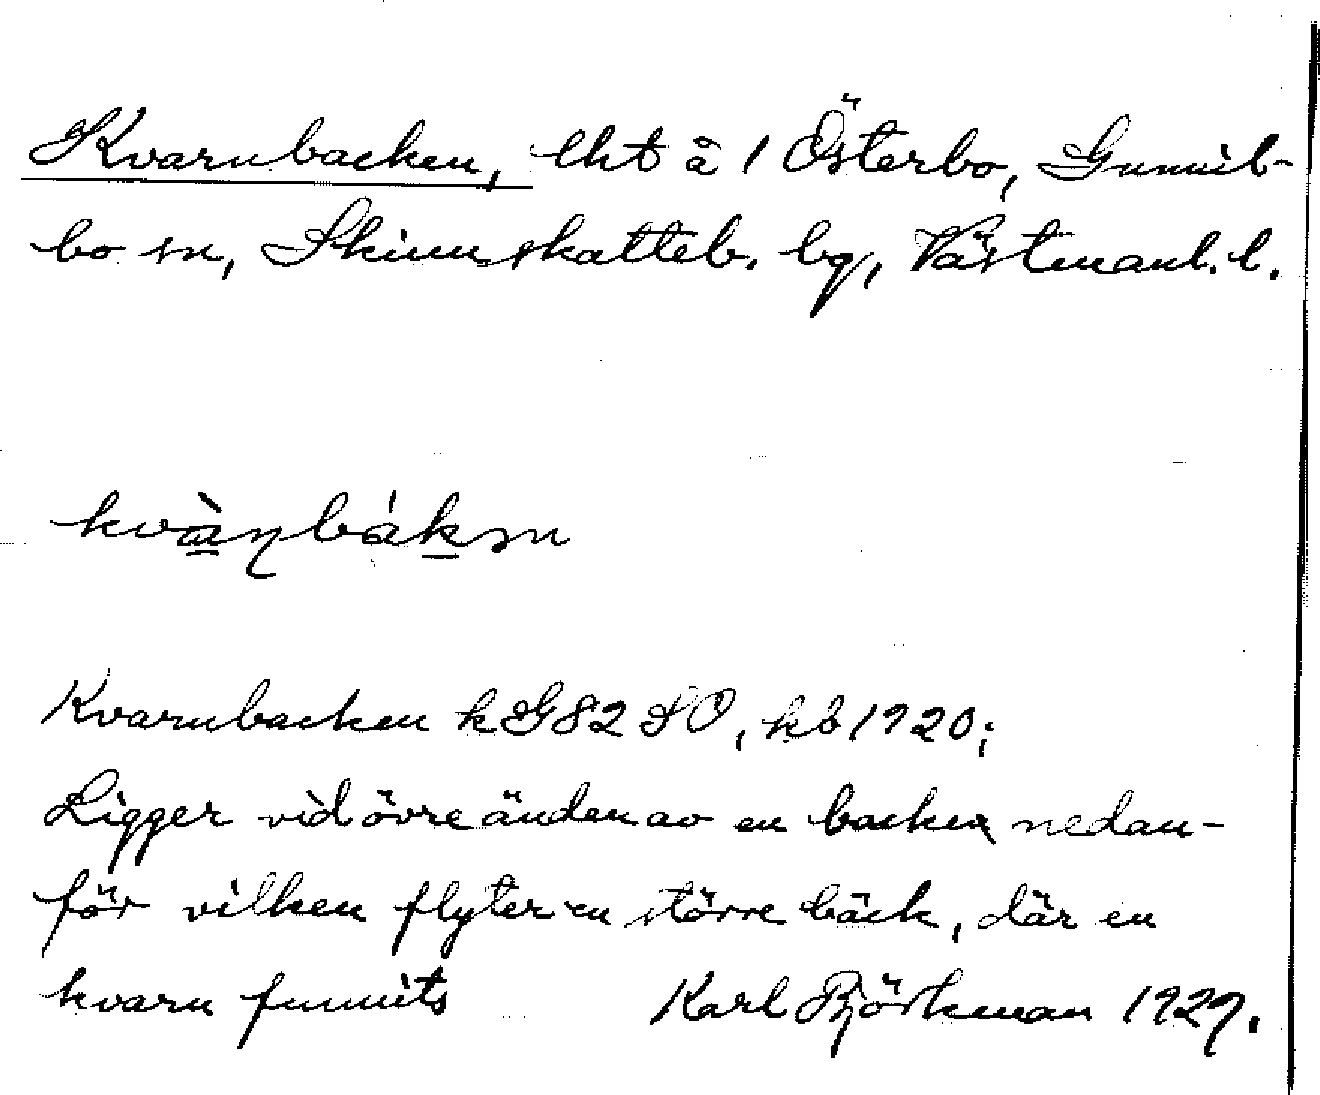 Kvarnbacken, lht å 1 Österbo, Gunnil-
bo sn, Skinnskatteb. bg, Västmanl. l.
kvàɳbákən
Kvarnbacken k G82 SO, kb 1920;
Ligger vid övre änden av en backe, nedan-
för vilken flyter en större bäck, där en
kvarn funnits Karl Björkman 1929.